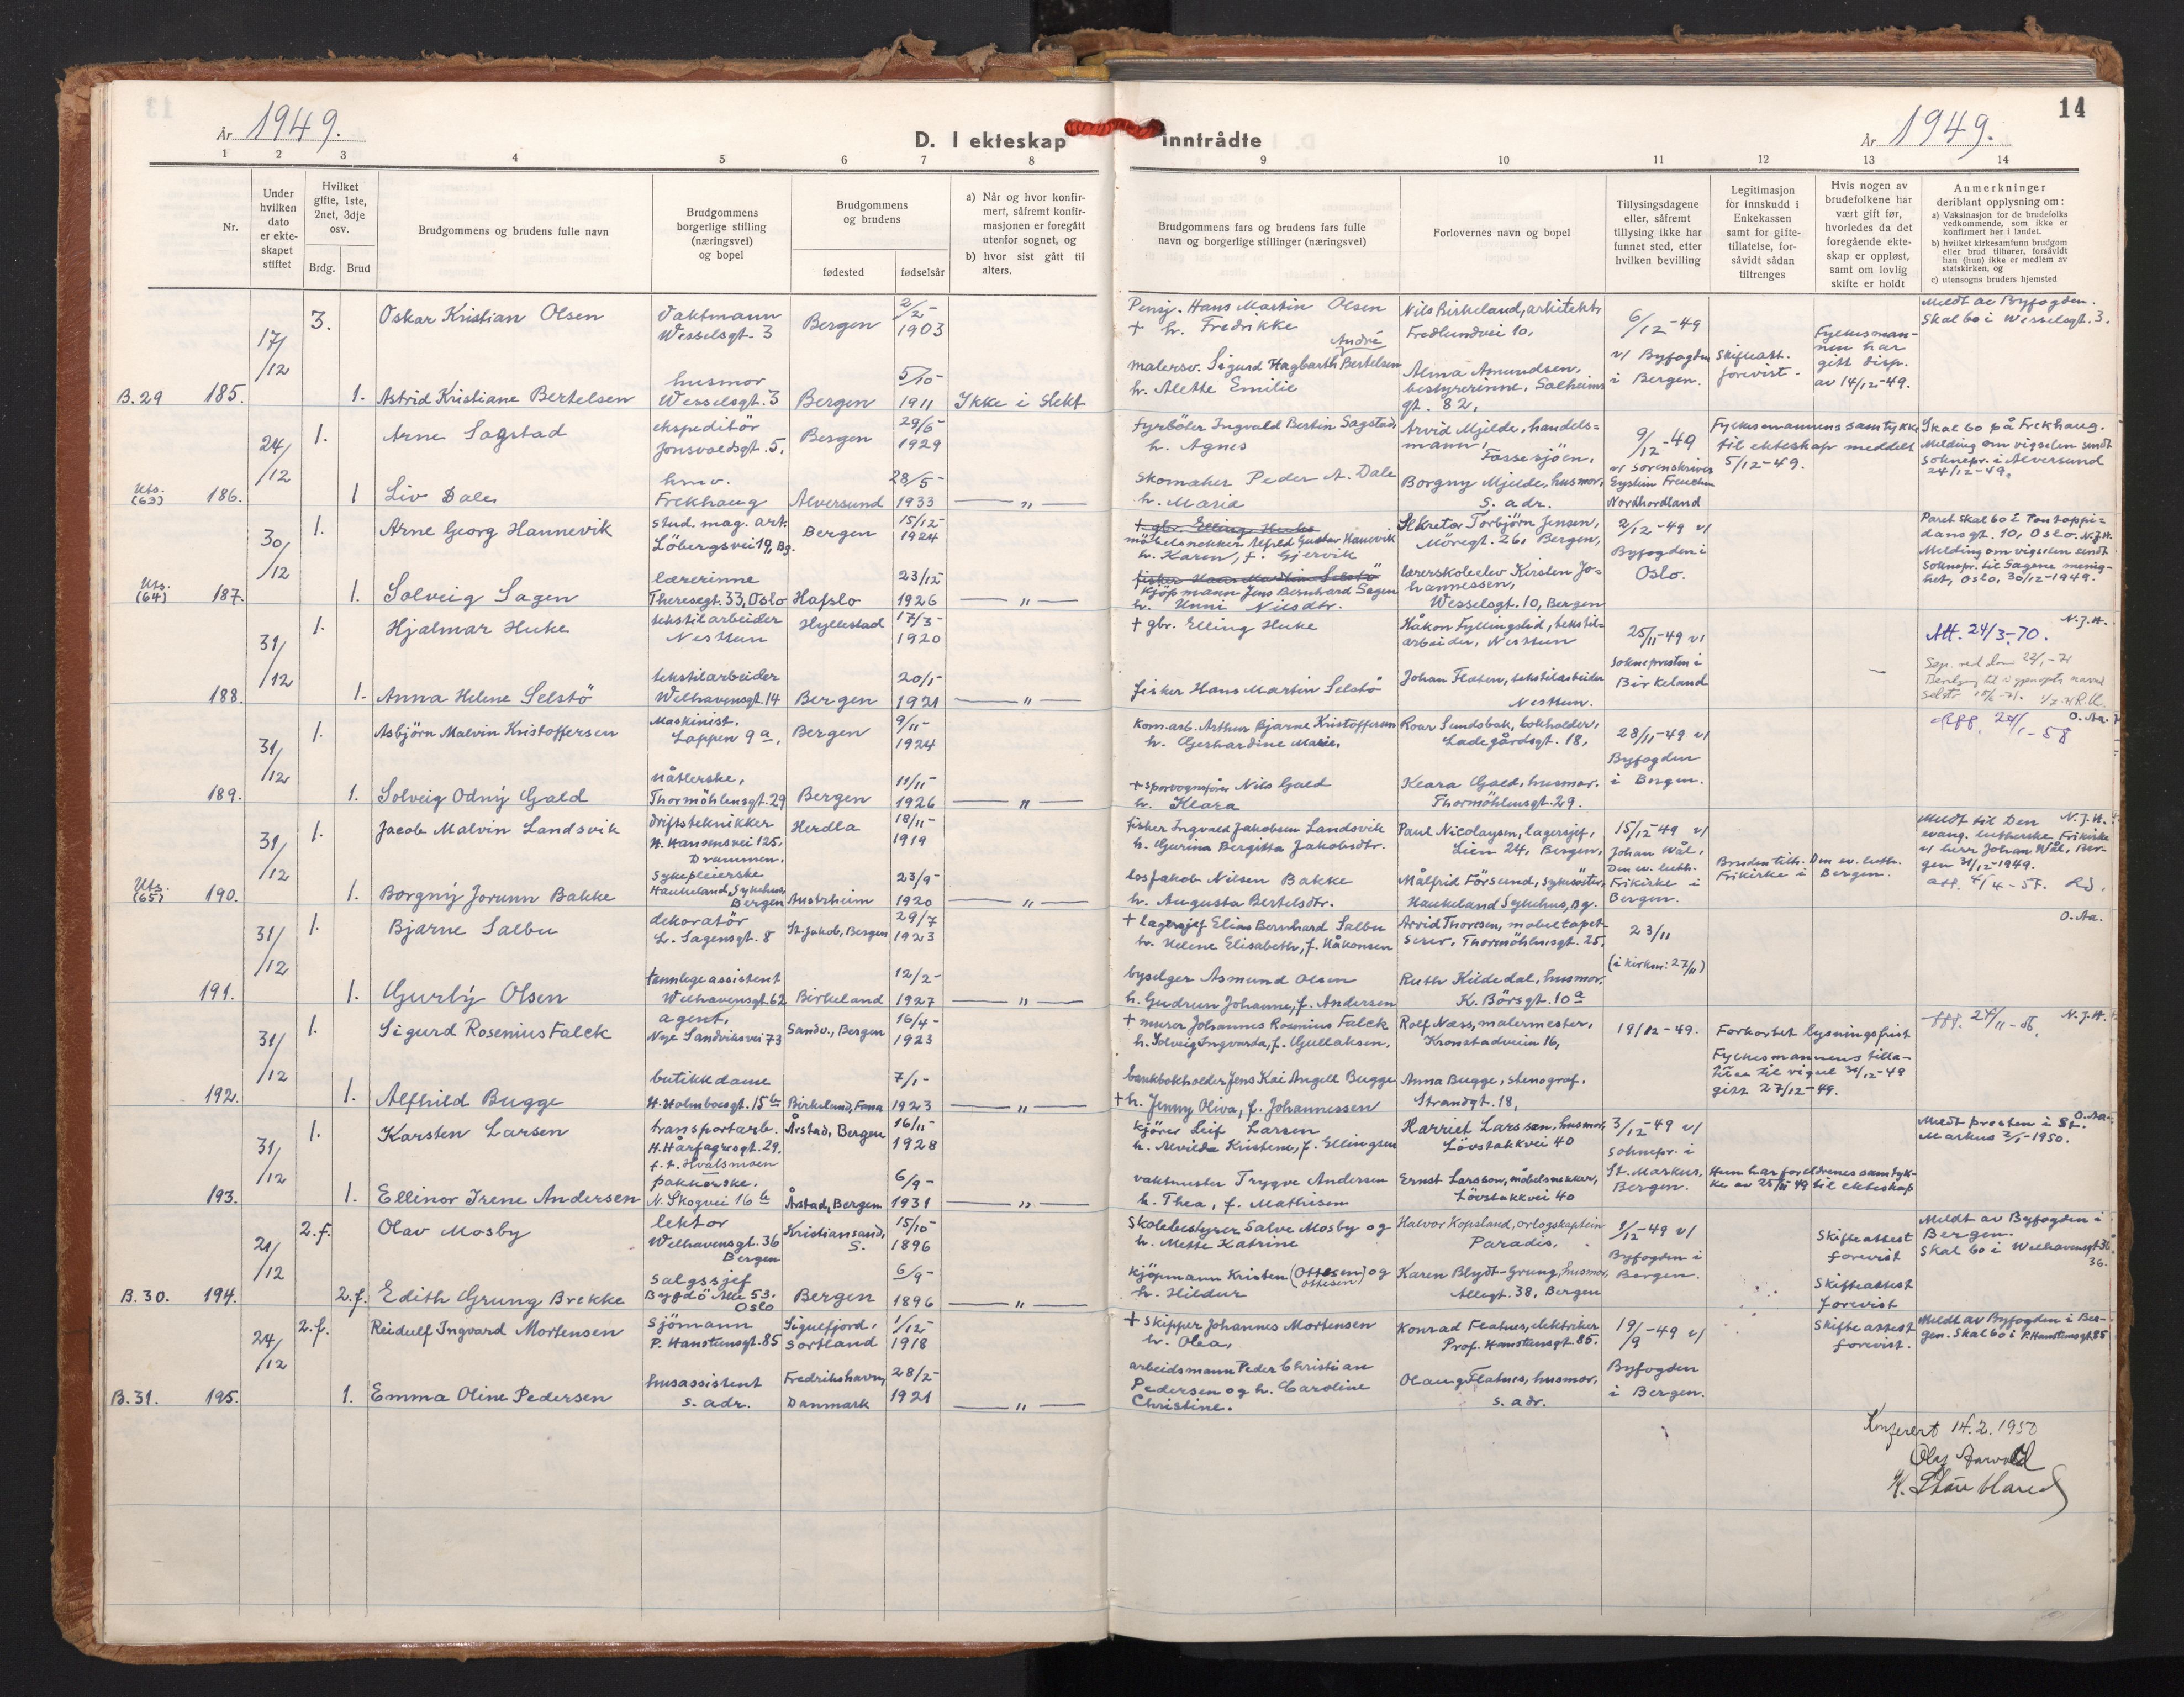 År 1949.
D. I ekteskap inntrådte
År 1949.
14
1 2 3 4 5 6 7 8 9 10 11 12 13 14
Nr.
Under hvilken dato er ekteskapet stiftet
Hvilket gifte, 1ste, 2net, 3dje osv.
Brdg. Brud
Brudgommens og brudens fulle navn
Brudgommens borgerlige stilling (næringsvei) og bopel
Brudgommens og brudens
fødested fødselsår
a) Når og hvor konfirmert, såfremt konfirmasjonen er foregått utenfor sognet, og
b) hvor sist gått til alters.
Brudgommens fars og brudens fars fulle navn og borgerlige stillinger (næringsvei)
Forlovernes navn og bopel
Tillysingsdagene eller, såfremt tillysing ikke har funnet sted, etter hvilken bevilling
Legitimasjon for innskudd i Enkekassen samt for giftetillatelse, forsåvidt sådan tiltrenges
Hvis nogen av brudefolkene har vært gift før, hvorledes da det foregående ekteskap er oppløst, samt om lovlig skifte er holdt
Anmerkninger deriblant opplysning om:
a) Vaksinasjon for de brudefolks vedkommende, som ikke er konfirmert her i landet.
b) hvilket kirkesamfunn brudgom eller brud tilhører, forsåvidt han (hun) ikke er medlem av statskirken, og
c) utensogns bruders hjemsted
17/12 3. Oskar Kristian Olsen Vaktmann Wesselsgt. 3 Bergen 2/2- 1903
Pensj. Hans Martin Olsen + h. Fredrikke
Nils Birkeland, arkitekt, Fredlundvei 10,
6/12-49 v/ Byfogden i Bergen.
Skifteatt. forevist.
Fylkesmannen har gitt disp. av 14/12-49.
Meldt av Byfogden. Skal bo i Wesselsgt. 3.
B.29 185. 1. Astrid Kristiane Bertelsen husmor Wesselsgt. 3 Bergen 5/10- 1911 Ikke i slekt
malersv. Sigurd Hagbarth André Bertelsen h. Alette Emilie
Alma Amundsen, bestyrerinne, Solheimsgt. 82,
24/12 1. Arne Sagstad ekspeditör Jonsvoldsgt. 5, Bergen 29/6- 1929
Fyrböter Ingvald Bertin Sagstad, h. Agnes
Arvid Mjelde, handelsmann, Fossesjöen,
9/12-49 v/ sorenskriver Eystin Frenchen Nordhordland
Fylkesmannens samtykke til ekteskap meddelt 5/12-49.
Skal bo på Frekhaug. Melding om vigselen sendt soknepr. i Alversund 24/12-49.
Uts. (63) 186. 1 Liv Dale hmv. Frekhaug Alversund 28/5- 1933 — " —
Skomaker Peder A. Dale h. Maria
Borgny Mjelde, husmor, s. adr.
30/12 1. Arne Georg Hannevik stud. mag. art. Löbergsvei 19, Bg. Bergen 15/12- 1924
+ gbr. Elling Huke
möbelsnekker Alfred Gustav Hannevik h. Karen, f. Gjervik
Sekretær Torbjörn Jensen, Möregt. 26, Bergen,
2/12-49 v/ Byfogden i Oslo.
Paret skal bo i Pontoppidansgt. 10, Oslo. N.J.H. Melding om vigselen sendt Soknepr. til Sagene menighet, Oslo, 30/12-1949.
Uts. (64) 187. 1. Solveig Sagen lærerinne Theresegt. 33, Oslo Hafslo 23/12- 1926 — " —
fisker Hans Martin Selstö
kjöpmann Jens Bernhard Sagen h. Unni Nilsdtr.
lærerskoleelev Kirsten Johannessen, Wesselsgt. 10, Bergen
31/12 1. Hjalmar Huke tekstilarbeider Nesttun Hyllestad 17/3- 1920
+ gbr. Elling Huke
Håkon Fyllingslid, tekstilarbeider, Nesttun
25/11-49 v/ soknepresten i Birkeland
N.J.H.
Att. 24/3-70.
188. 1. Anna Helene Selstö tekstilarbeider Welhavensgt. 14 Bergen 20/1- 1921 — " —
fisker Hans Martin Selstö
Johan Floten, tekstilarbeider Nesttun.
31/12 1. Asbjörn Malvin Kristoffersen Maskinist. Lappen 9a, Bergen 9/11- 1924
Kom.arb. Arthur Bjarne Kristoffersen h. Gerhardine Marie,
Roar Sundsbak, bokholder, Ladegårdsgt. 18,
28/11-49 v/ Byfogden i Bergen.
O. Aa.
24/1-58
189. 1. Solveig Odný Gald nåtlerske, Thormöhlensgt. 29 Bergen 11/11- 1926 — " —
+ sporvognsförer Nils Gald h. Klara
Klara Gald, husmor. Thormöhlensgt. 29.
31/12 1. Jacob Malvin Landsvik driftstekniker H. Hansensvei 125, Drammen. Herdla 18/11- 1919
fisker Ingvald Jakobsen Landsvik h. Gurina Bergitta Jakobsdtr.
Paul Nicolaysen, lagersjef, Lien 24, Bergen,
15/12-49 v/ Johan Wål, Den ev. luth. Frikirke i Bergen.
Bruden tilh. Den ev. luth. Frikirke i Bergen.
Meldt til Den N.J.H. evang. lutherske Frikirke v/ herr Johan Wål, Bergen 31/12-1949.
att. 4/4-57.
Uts. (65) 190. 1. Borgný Jorunn Bakke Sykepleierske Haukeland Sykehus, Bergen Austrheim 23/9- 1920 — " —
los Jakob Nilsen Bakke h. Augusta Bertelsdtr.
Målfrid Försund, sykesöster, Haukeland Sykehus, Bg.
31/12 1. Bjarne Salbu dekoratör L. Sagensgt. 8 St. Jakob, Bergen 29/7 1923
+ lagersjef Elias Bernhard Salbu h. Helene Elisabeth, f. Håkonsen
Arvid Thoresen, møbeltapetserer, Thormöhlensgt. 25,
23/11 (i kirken: 27/11)
O. Aa.
191. 1. Gurlý Olsen tannlegeassistent Welhavensgt. 62 Birkeland 12/2- 1927 — " —
byselger Asmund Olsen h. Gudrun Johanne, f. Andersen
Ruth Kildedal, husmor, K. Börsgt. 10a
31/12 1. Sigurd Rosenius Falck agent, Nye Sandviksvei 73 Sandv., Bergen 16/4- 1923
+ murer Johannes Rosenius Falck h. Solveig Ingvarda, f. Gullaksen.
Rolf Næss, malermester, Kronstadveien 16,
19/12-49.
Forkortet lysningsfrist Fylkesmannens tillatelse til vigsel 31/12-49 gitt 27/12-49.
N.J.H.
192. 1. Alfhild Bugge butikkdame H. Holmboesgt. 15b Birkeland, Fana 7/1- 1923 — " —
bankbokholder Jens Kai Angell Bugge + h. Jenny Oliva, f. Johannessen
Anna Bugge, stenograf. Strandgt. 18,
31/12 1. Karsten Larsen transportarb. H. Hårfagresgt. 29. f. t. Hvalsmoen Årstad, Bergen 16/11- 1928
kjörer Leif Larsen h. Alvilda Kristene, f. Ellingsen
Harriet Larssen, husmor, Lövstakkvei 40
3/12-49 v/ soknepr. i St. Markus, Bergen.
Hun har foreldrenes samtykke av 25/11 49 til ekteskap
Meldt presten i St. Markus 2/1-1950. O. Aa.
193. 1. Ellinor Irene Andersen pakkerske. N. Skogvei 16b Årstad, Bergen 6/9- 1931 — " —
vaktmester Trygve Andersen h. Thea, f. Mathisen
Ernst Larsson, möbelsnekker, Lövstakkvei 40
21/12 2.f. Olav Mosby lektor Welhavensgt. 36 Bergen Kristiansand, S. 15/10- 1896
Skolebestyrer Salve Mosby og h. Mette Katrine
Halvor Hopsland, orlogskaptein Paradis.
1/12-49 v/ Byfogden i Bergen.
Skifteattest forevist
Meldt av Byfogden i Bergen. Skal bo i Welhavensgt 36
36.
B. 30. 194. 2.f. Edith Grung Brekke Salgssjef Bygdö Alle 53. Oslo Bergen 6/9- 1896 — " —
kjöpmann Kristen (Ottesen) og h. Hildur
ottesen
Karen Blydt-Grung, husmor, Allegt. 38, Bergen
Skifteattest forevist
24/12 2.f. Reidulf Ingvard Mortensen sjömann P. Hanstensgt. 85 Sigerfjord, Sortland 1/12- 1918
+ Skipper Johannes Mortensen h. Olea,
Konrad Flatnes, elektriker Prof. Hanstensgt. 85.
19/9-49 v/ Byfogden i Bergen.
Skifteattest forevist.
Meldt av Byfogden i Bergen. Skal bo i P. Hanstensgt 85
B. 31. 195. 1. Emma Oline Pedersen husassistent s. adr. Fredrikshavn, Danmark 28/2- 1921 — " —
arbeidsmann Peder Christian Pedersen og h. Caroline Christine.
Olaug Flatnes, husmor, s. adr.
Konferert 14.2.1950